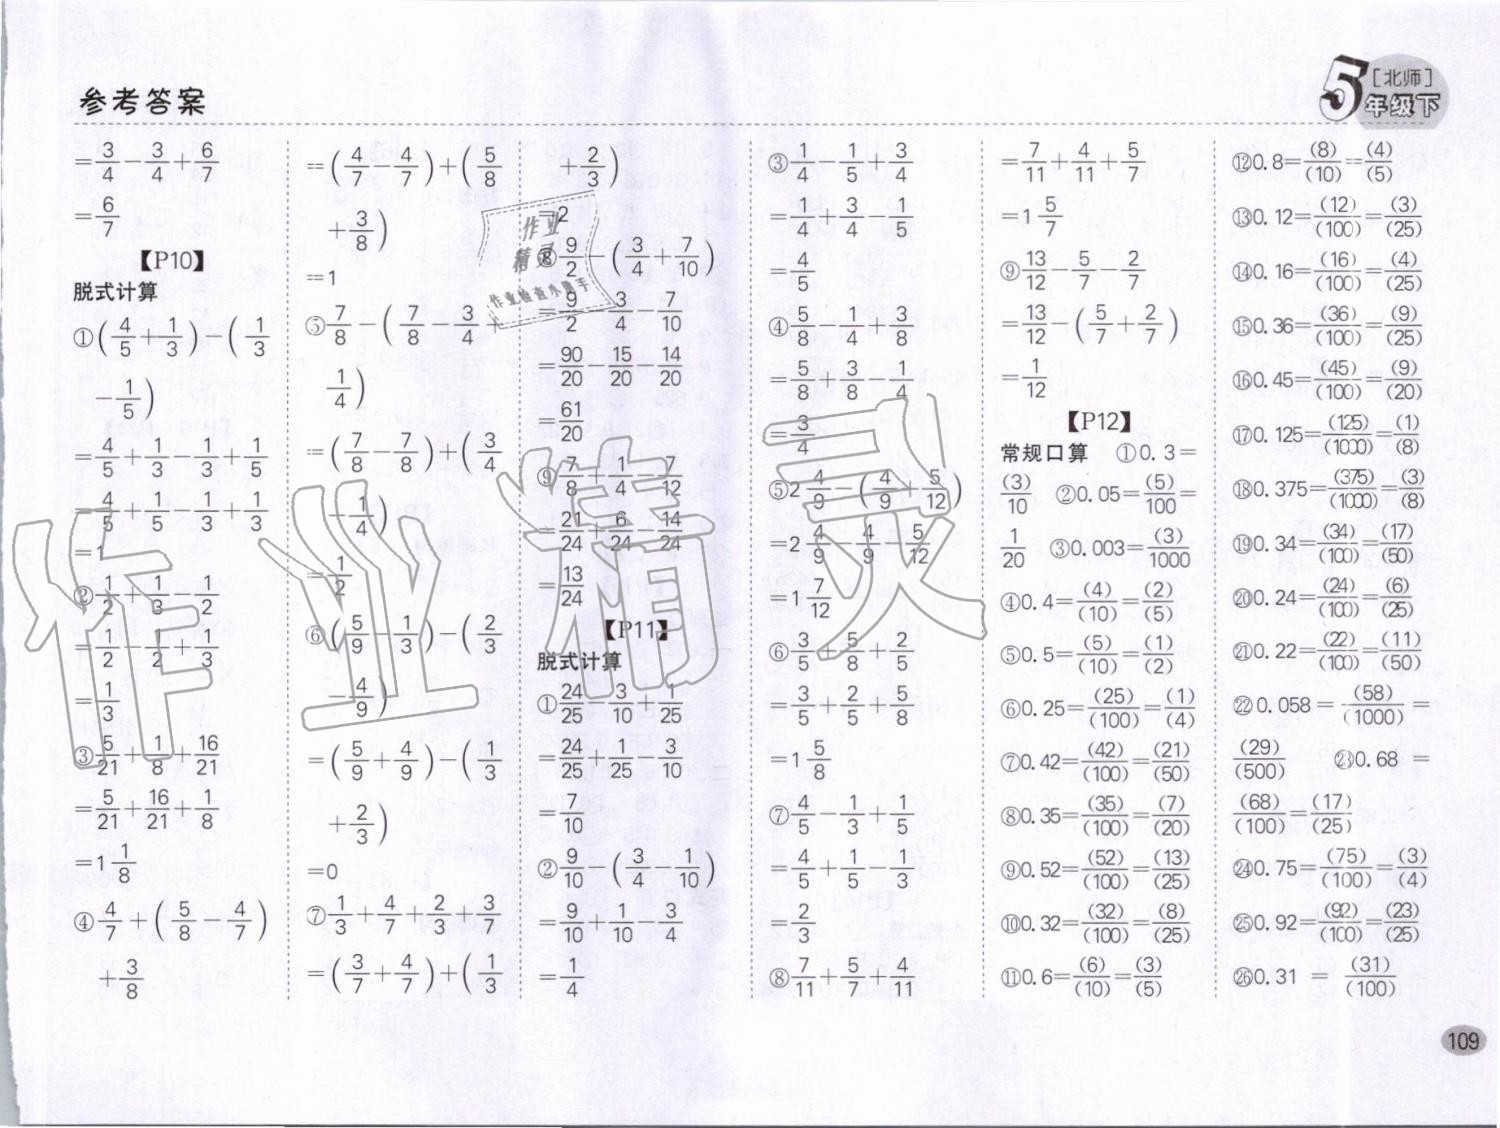 参考答案
5年级下[北师]
=3/4-3/4+6/7
=6/7
【P10】
脱式计算
①(4/5+1/3)-(1/3
-1/5)
=4/5+1/3-1/3+1/5
=4/5+1/5-1/3+1/3
=1
②1/2+1/3-1/2
=1/2-1/2+1/3
=1/3
③5/21+1/8+16/21
=5/21+16/21+1/8
=1 1/8
④4/7+(5/8-4/7)
+3/8
=(4/7-4/7)+(5/8
+3/8)
=1
⑤7/8-(7/8-3/4+
1/4)
=(7/8-7/8)+(3/4
-1/4)
=1/2
⑥(5/9-1/3)-(2/3
-4/9)
=(5/9+4/9)-(1/3
+2/3)
=0
⑦1/3+4/7+2/3+3/7
=(3/7+4/7)+(1/3
+2/3)
=2
⑧9/2-(3/4+7/10)
=9/2-3/4-7/10
=90/20-15/20-14/20
=61/20
⑨7/8+1/4-7/12
=21/24+6/24-14/24
=13/24
【P11】
脱式计算
①24/25-3/10+1/25
=24/25+1/25-3/10
=7/10
②9/10-(3/4-1/10)
=9/10+1/10-3/4
=1/4
③1/4-1/5+3/4
=1/4+3/4-1/5
=4/5
④5/8-1/4+3/8
=5/8+3/8-1/4
=3/4
⑤2 4/9-(4/9+5/12)
=2 4/9-4/9-5/12
=1 7/12
⑥3/5+5/8+2/5
=3/5+2/5+5/8
=1 5/8
⑦4/5-1/3+1/5
=4/5+1/5-1/3
=2/3
⑧7/11+5/7+4/11
=7/11+4/11+5/7
=1 5/7
⑨13/12-5/7-2/7
=13/12-(5/7+2/7)
=1/12
【P12】
常规口算 ①0.3=
(3)/10 ②0.05=(5)/100=
1/20 ③0.003=(3)/1000
④0.4=(4)/(10)=(2)/(5)
⑤0.5=(5)/(10)=(1)/(2)
⑥0.25=(25)/(100)=(1)/(4)
⑦0.42=(42)/(100)=(21)/(50)
⑧0.35=(35)/(100)=(7)/(20)
⑨0.52=(52)/(100)=(13)/(25)
⑩0.32=(32)/(100)=(8)/(25)
⑪0.6=(6)/(10)=(3)/(5)
⑫0.8=(8)/(10)=(4)/(5)
⑬0.12=(12)/(100)=(3)/(25)
⑭0.16=(16)/(100)=(4)/(25)
⑮0.36=(36)/(100)=(9)/(25)
⑯0.45=(45)/(100)=(9)/(20)
⑰0.125=(125)/(1000)=(1)/(8)
⑱0.375=(375)/(1000)=(3)/(8)
⑲0.34=(34)/(100)=(17)/(50)
⑳0.24=(24)/(100)=(6)/(25)
㉑0.22=(22)/(100)=(11)/(50)
㉒0.058=(58)/(1000)=
(29)/(500) ㉓0.68=
(68)/(100)=(17)/(25)
㉔0.75=(75)/(100)=(3)/(4)
㉕0.92=(92)/(100)=(23)/(25)
㉖0.31=(31)/(100)
109
作业精灵
作业
精灵
作业检查小助手